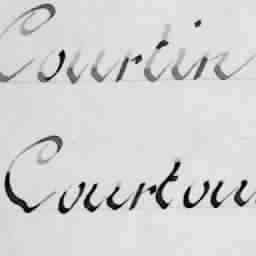 Courtin
Courtou